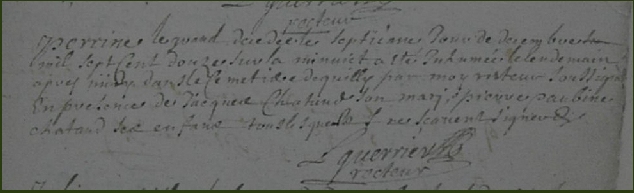 guerrier
recteur
perrine le quand decedée le septiéme Jour de decembre
mil sept Cent douze sur la minuict a été Inhumée le lendemain
apres midy dans le Cemetiere de quilly par moy recteur soussigne
En presence de Jacques Chataud son mary pierre
chataud ses enfans tous lesquels ne scavent signer
guerrier
recteur